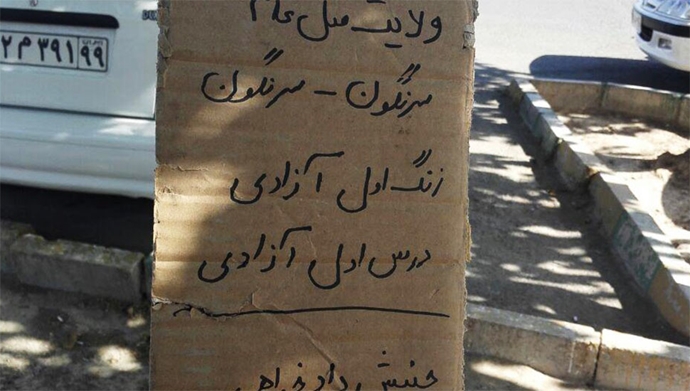 ولایت مثل
سرنگون - سرنگون
زنگ اول آزادی
درس اول آزادی
جنبش دادخواهی
۲م۳۹۱ ۹۹